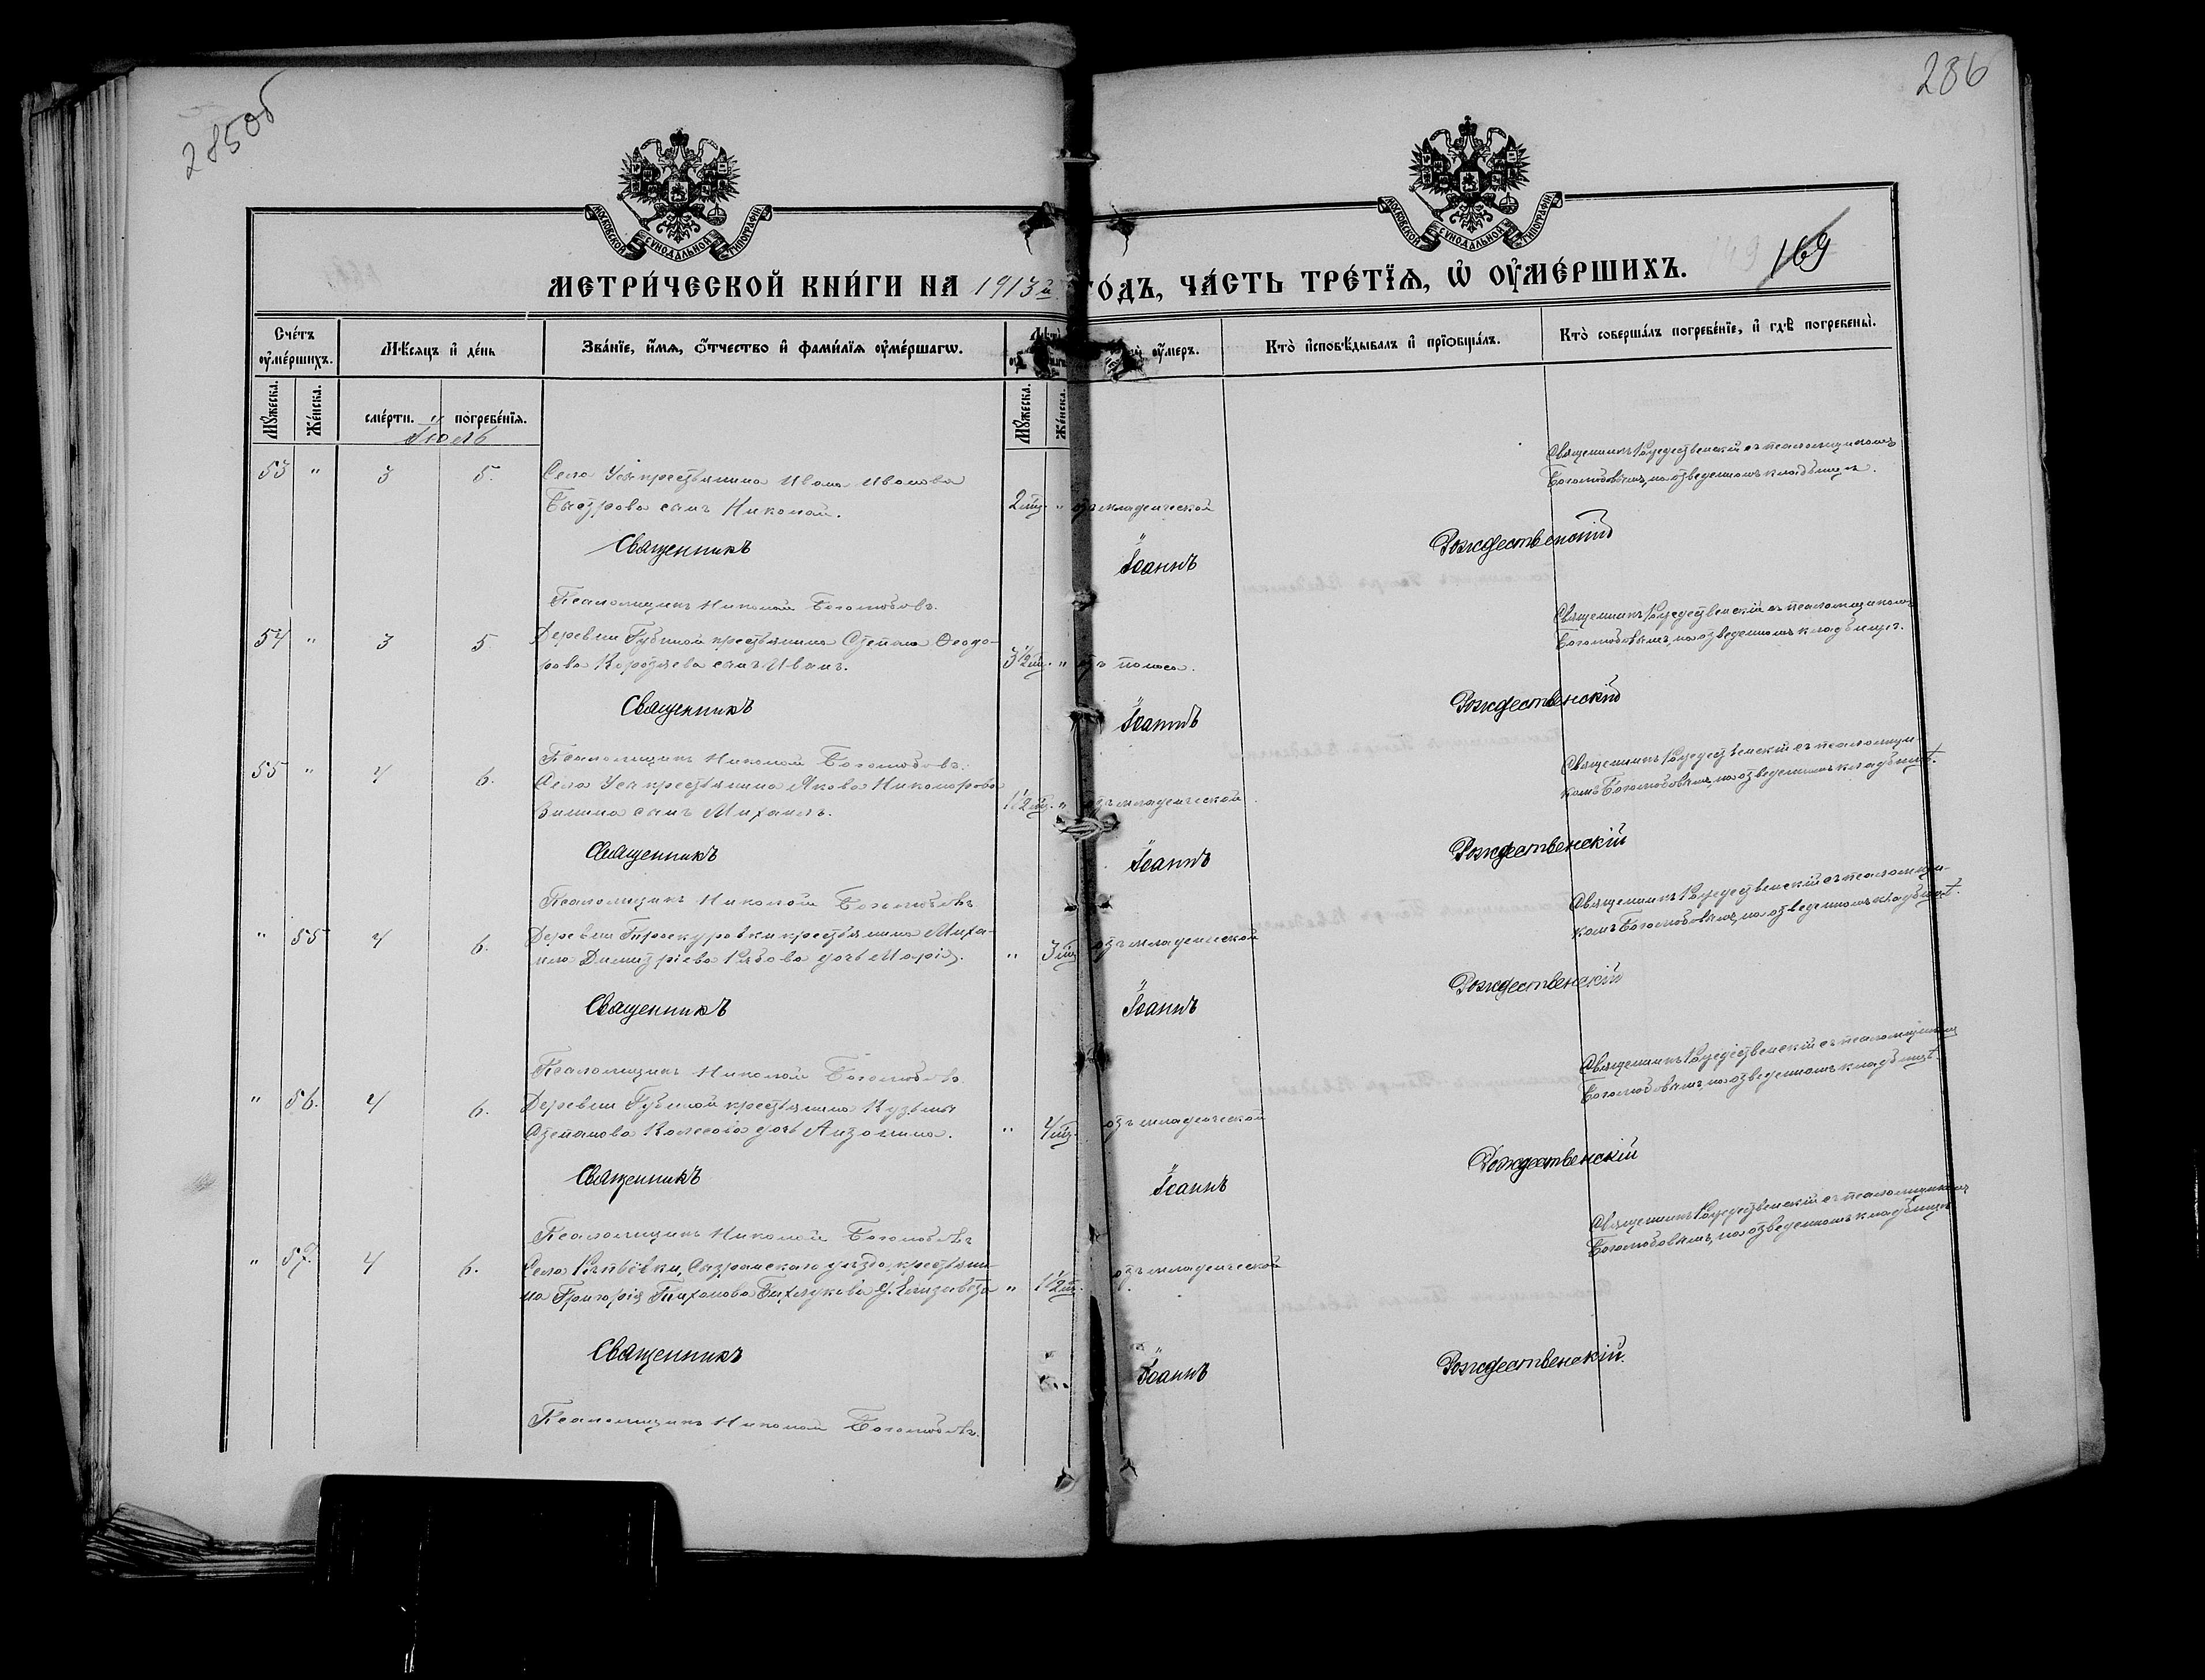 285об
286
МОСКОВСКОЙ СѴНОДАЛЬНОЙ ТИПОГРАФІИ
МОСКОВСКОЙ СѴНОДАЛЬНОЙ ТИПОГРАФІИ
169
МЕТРИ́ЧЕСКОЙ КНИ́ГИ НА 1913й ГО́ДЪ, ЧА́СТЬ ТРЕ́ТЇѦ, Ѡ҆ ОУ҆МЕ́РШИХЪ.
Сче́тъ оу҆ме́ршихъ.
Мѣ́сяцъ и҆ де́нь
Зва́нїе, и҆́мѧ, ѻ҆́тчество и҆ фами́лїѧ оу҆ме́ршагѡ.
Лѣ́та
оу҆́меръ.
Кто̀ и҆сповѣ́дывалъ и҆ прїѡбща́лъ.
Кто̀ соверша́лъ погребе́нїе, и҆ гдѣ̀ погребены̀.
Мꙋ́жеска.
Же́нска.
сме́рти.
погребе́нїѧ.
Мꙋ́жеска.
Же́нска.
Іюль
53 " 3 5. Села Усы крестьянина Ивана Иванова
Быстрова сынъ Николай. 2 мц. " отъ младенческой
Священникъ Рождественскій съ псаломщикомъ
Боголюбовымъ, на отведенномъ кладбищѣ.
Священникъ Іоаннъ Рождественскій
Псаломщикъ Николай Боголюбовъ.
54 " 3 5. Деревни Губиной крестьянина Степана Ѳеодо-
рова сынъ Иванъ. 3½ мц. " отъ поноса.
Священникъ Рождественскій съ псаломщикомъ
Боголюбовымъ, на отведенномъ кладбищѣ.
Священникъ Іоаннъ Рождественскій
Псаломщикъ Николай Боголюбовъ.
55 " 4 6. Села Усы крестьянина Якова Никонорова
Зимина сынъ Михаилъ. 1½ мц. " отъ младенческой
Священникъ Рождественскій съ псаломщи-
комъ Боголюбовымъ, на отведенномъ кладбищѣ.
Священникъ Іоаннъ Рождественскій
Псаломщикъ Николай Боголюбовъ
" 55 4 6. Деревни Проскуровки крестьянина Миха-
ила Димитріева Рябова дочь Марія. " 3 мц. отъ младенческой
Священникъ Рождественскій съ псаломщи-
комъ Боголюбовымъ, на отведенномъ кладбищѣ.
Священникъ Іоаннъ Рождественскій
Псаломщикъ Николай Боголюбовъ.
" 56. 4 6. Деревни Губиной крестьянина Кузьмы
Степанова Колесова дочь Антонина. " 4 мц. отъ младенческой
Священникъ Рождественскій съ псаломщикомъ
Боголюбовымъ, на отведенномъ кладбищѣ
Священникъ Іоаннъ Рождественскій
Псаломщикъ Николай Боголюбовъ
" 57. 4 6. Села Рѣпьёвки, Сызранскаго уѣзда, крестьяни-
на Григорія Тихонова д. Елизавета " 1½ мц. отъ младенческой
Священникъ Рождественскій съ псаломщикомъ
Боголюбовымъ, на отведенномъ кладбищѣ
Священникъ Іоаннъ Рождественскій.
Псаломщикъ Николай Боголюбовъ.